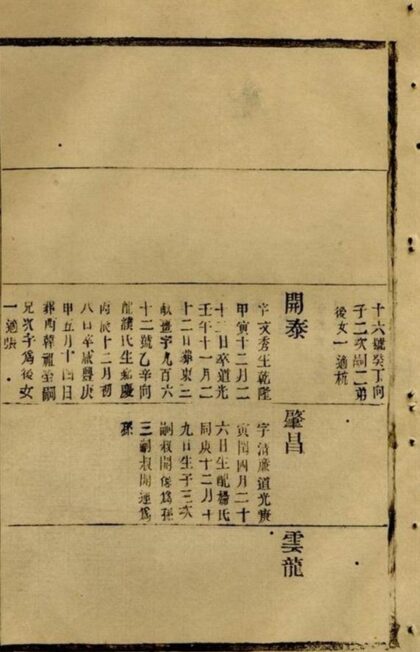 十六號癸丁向
子二次嗣二弟
後女一適杭
開泰
字汝秀生乾隆
甲寅十二月二
十三日卒道光
壬午十一月二
十二日葬東三
畫字九百六
十二號乙辛向
配濮氏生嘉慶
丙辰十二月初
八日卒咸豐庚
申五月十四日
葬西祖塋嗣
兄次子為後女
一適張
肇昌
字清道光庚
寅閏四月二十
六日生配楊氏
同庚十二月十
九日生子三次
嗣叔開保為孫
三嗣叔開運為
孫
雲龍